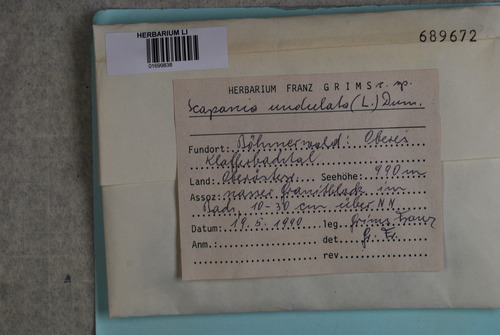 HERBARIUM LI
01699838
689672
HERBARIUM FRANZ GRIMS c. sp.
Scapania undulata (L.) Dum.
Fundort: Böhmerwald: Oberes
Klafferbachtal
Land: Oberösterr. Seehöhe: 990 m
Assoz: nasser Granitblock im
Bach, 10-30 cm über NN
Datum: 19.5.1990 leg. Grims Franz
Anm.: det. G. Fr.
rev.